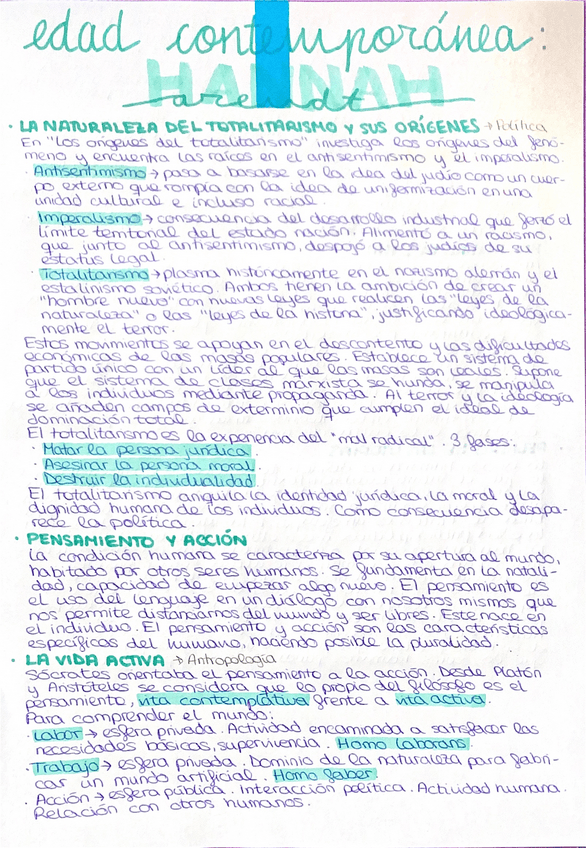 edad contemporánea:
HANNAH
arendt
· LA NATURALEZA DEL TOTALITARISMO Y SUS ORÍGENES → Política
En "los orígenes del totalitarismo" investiga los orígenes del fenó-
meno y encuentra las raíces en el antisentimismo y el imperalismo.
· Antisentimismo → pasa a basarse en la idea del judío como un cuer-
po externo que rompía con la idea de uniformización en una
unidad cultural e incluso racial.
· Imperalismo → consecuencia del desarrollo industrial que forzó el
límite territorial del estado nación. Alimentó a un racismo,
que junto al antisentimismo, despojó a los judíos de su
estatus legal.
· Totalitarismo → plasma históricamente en el nazismo alemán y el
estalinismo soviético. Ambos tienen la ambición de crear un
"hombre nuevo" con nuevas leyes que realicen las "leyes de la
naturaleza" o las "leyes de la historia", justificando ideológica-
mente el terror.
Estos movimientos se apoyan en el descontento y las dificultades
económicas de las masas populares. Establece un sistema de
partido único con un líder al que las masas son leales. Supone
que el sistema de clases marxista se hunda, se manipula
a los individuos mediante propaganda. Al terror y la ideología
se añaden campos de exterminio que cumplen el ideal de
dominación total.
El totalitarismo es la experiencia del "mal radical". 3 fases:
· Matar la persona jurídica.
· Asesinar la persona moral.
· Destruir la individualidad.
El totalitarismo aniquila la identidad jurídica, la moral y la
dignidad humana de los individuos. Como consecuencia desapa-
rece la política.
· PENSAMIENTO Y ACCIÓN
La condición humana se caracteriza por su apertura al mundo,
habitado por otros seres humanos. Se fundamenta en la natali-
dad, capacidad de empezar algo nuevo. El pensamiento es
el uso del lenguaje en un diálogo con nosotros mismos que
nos permite distanciarnos del mundo y ser libres. Este nace en
el individuo. El pensamiento y acción son las características
específicas del humano, haciendo posible la pluralidad.
· LA VIDA ACTIVA → Antropología
Sócrates orientaba el pensamiento a la acción. Desde Platón
y Aristóteles se considera que lo propio del filósofo es el
pensamiento, vita contemplativa frente a vita activa.
Para comprender el mundo:
· Labor → esfera privada. Actividad encaminada a satisfacer las
necesidades básicas, supervivencia. Homo laborans.
· Trabajo → esfera privada. Dominio de la naturaleza para fabri-
car un mundo artificial. Homo faber.
· Acción → esfera pública. Interacción política. Actividad humana.
Relación con otros humanos.